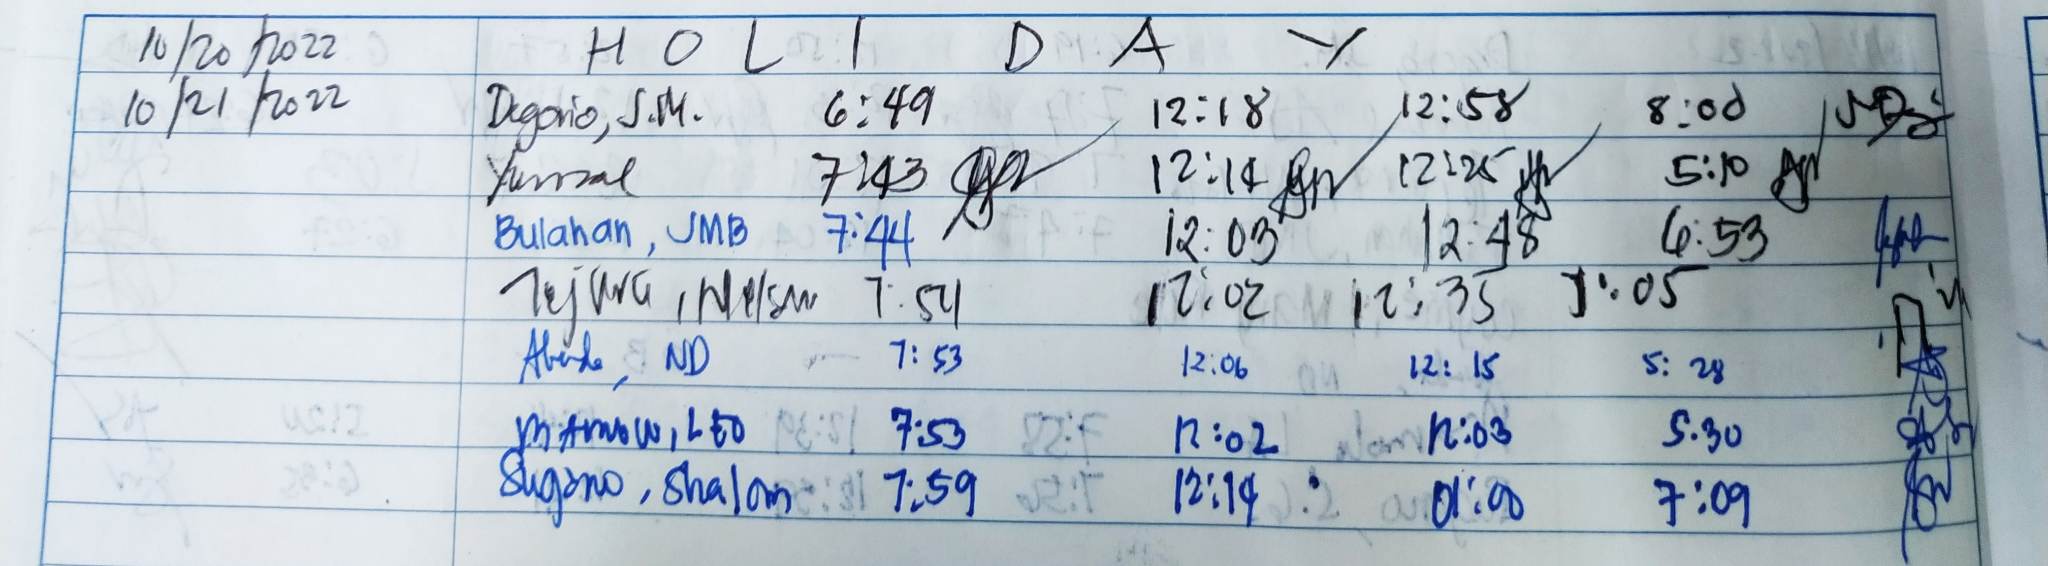 10/20/2022 H O L I D A Y
10/21/2022 Degorio, S.M. 6:49 12:18 12:58 8:00
Yumral 7:43 12:14 12:25 5:10
Bulahan, JMB 7:44 12:03 12:48 6:53
Nelson 7:54 12:02 12:35 7:05
ND 7:53 12:06 12:15 5:28
LEO 7:53 12:02 12:03 5:30
Sugano, Shalom 7:59 12:14 01:00 7:09